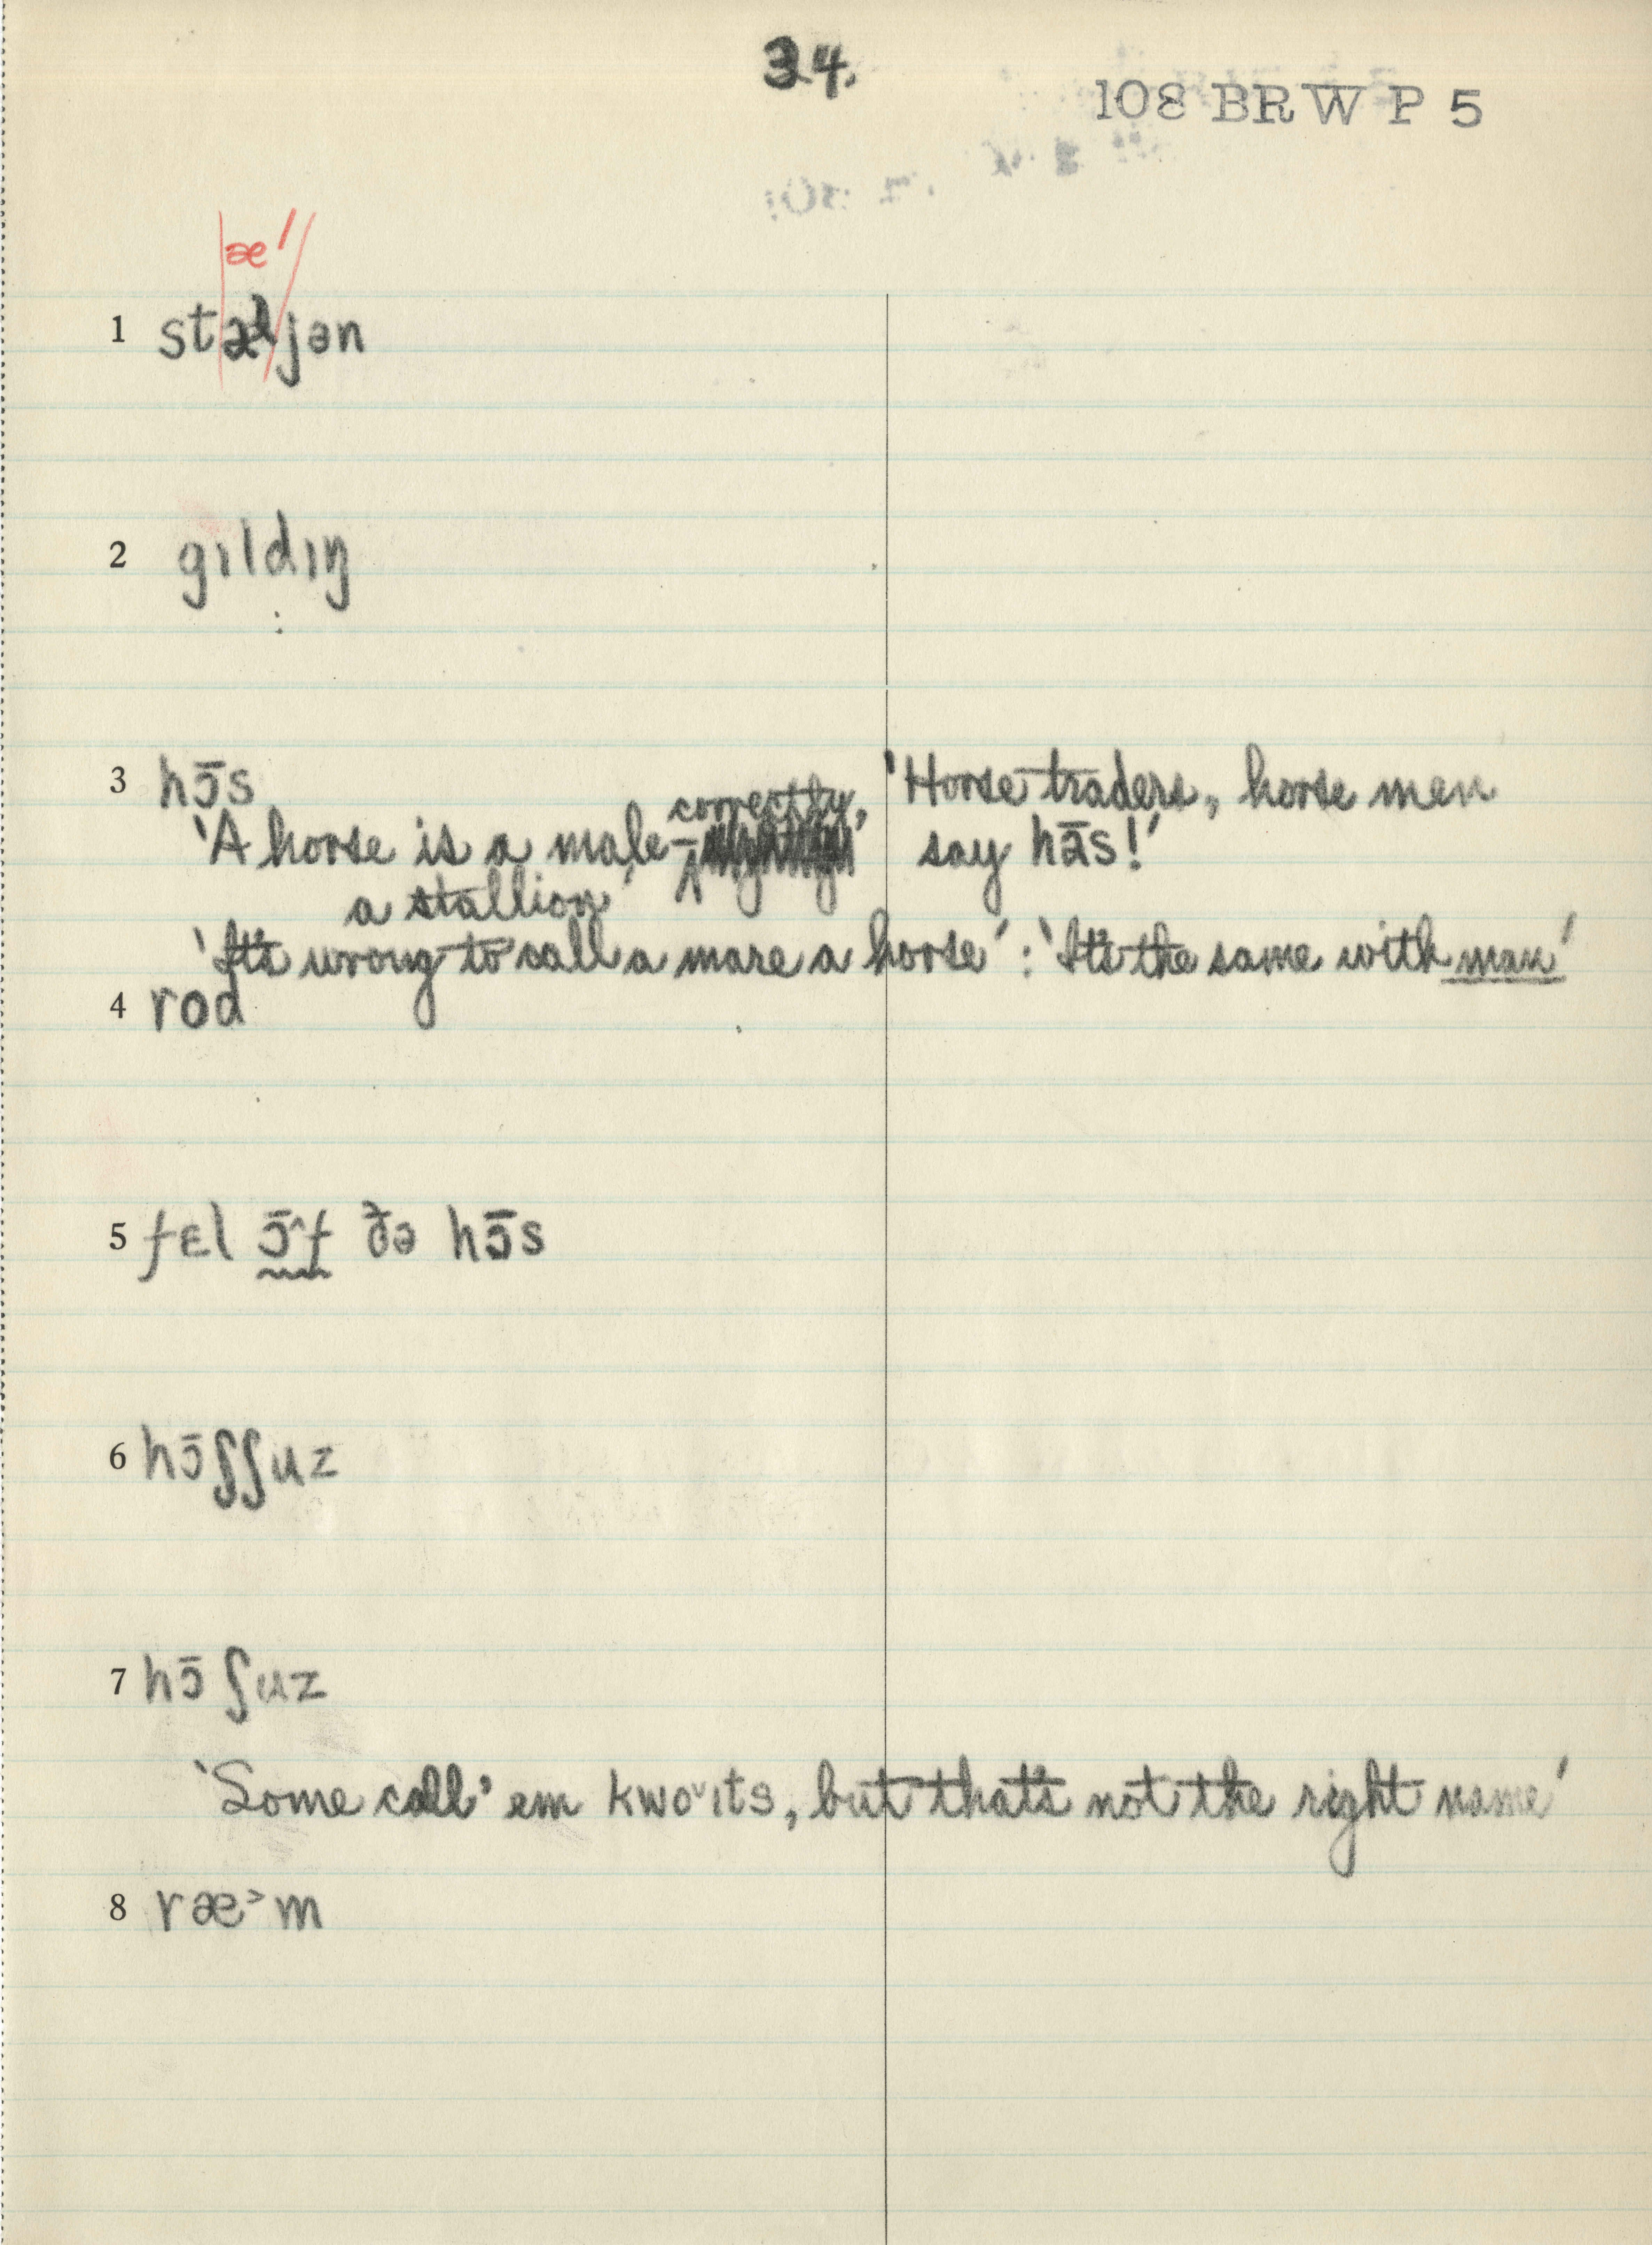 34.
108 BRW P 5
æ'
1 stæljən
2 gɪldɪŋ
3 hɔ̄s
correctly, 'Horse traders, horse men
'A horse is a male – say hās!'
a stallion'
'It's wrong to call a mare a horse' : 'It's the same with man'
4 rod
5 fɛl ɔ̄^f ðə hɔ̄s
6 hɔ̄ʃʃuz
7 hɔ̄ʃuz
'Some call 'em kwo˅ɪts, but that's not the right name'
8 ræ˃m